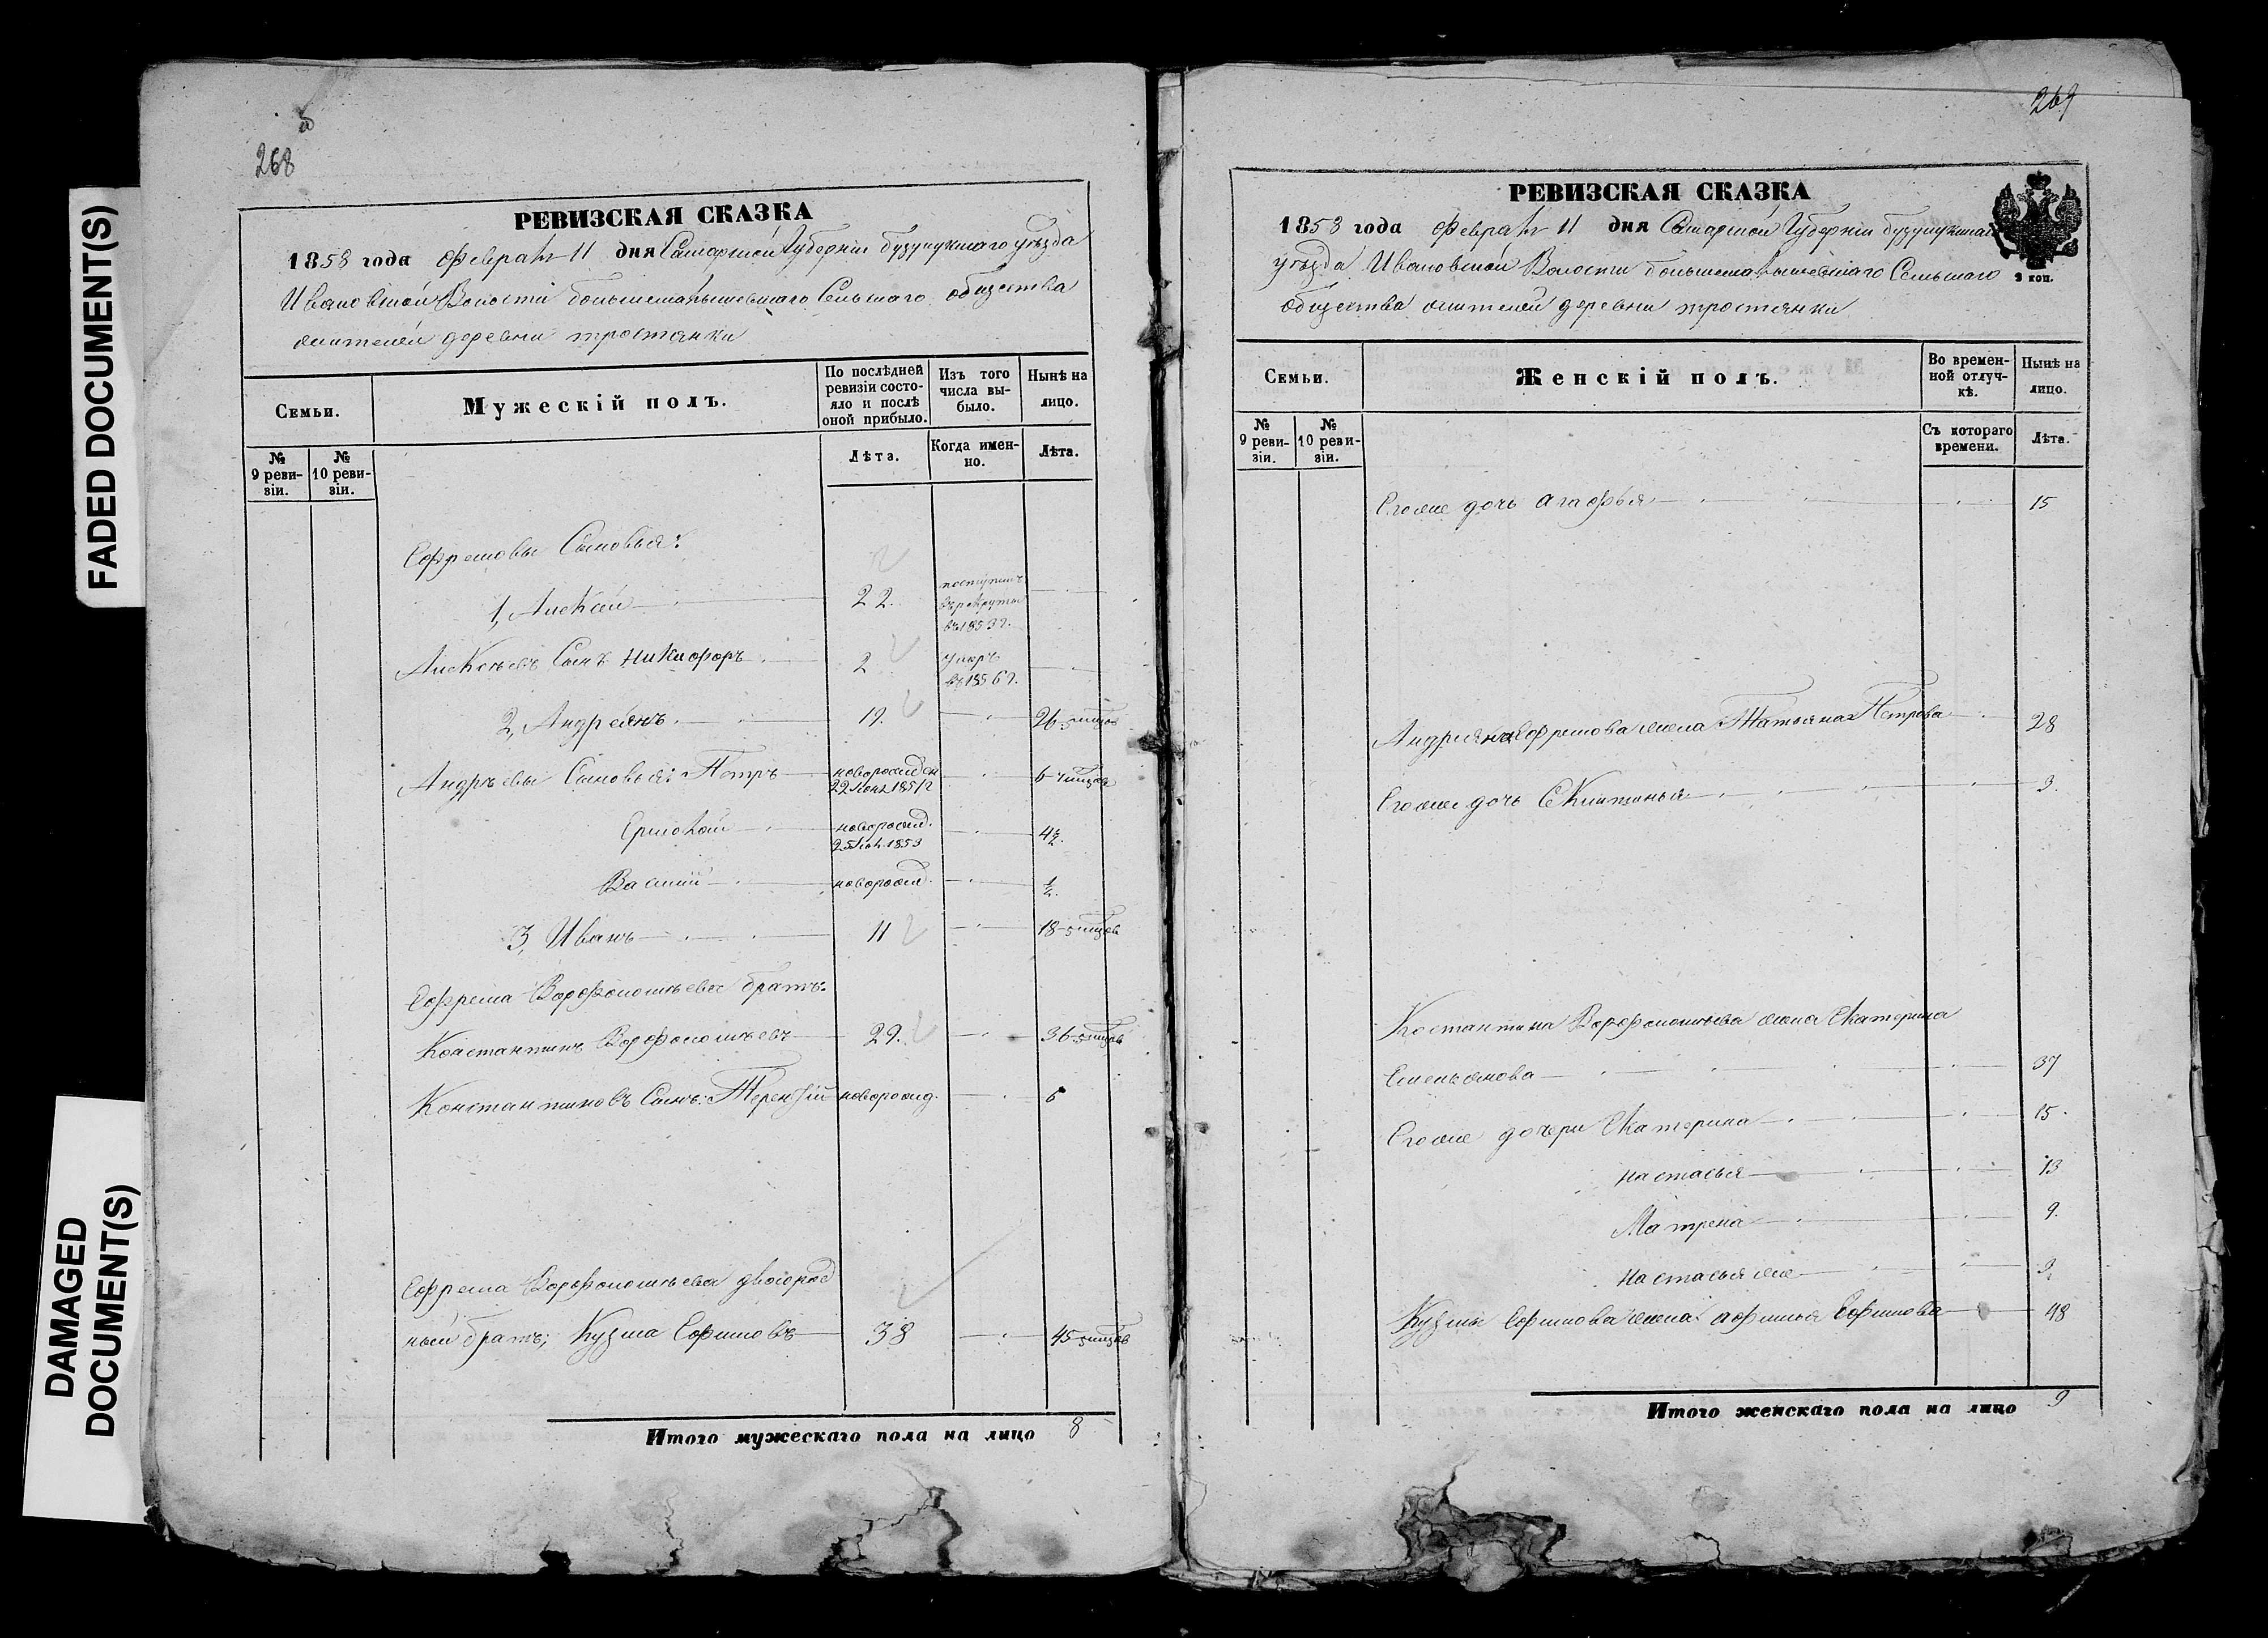 FADED DOCUMENT(S)
DAMAGED
DOCUMENT(S)
268
РЕВИЗСКАЯ СКАЗКА
1858 года Февраля 11 дня Самарской Губерніи бузулукшаго уѣзда
Ивановской Волости Сельшаго общества
жителей деревни тростянки
Семьи.
Мужескій полъ.
По послѣдней
ревизіи состо-
яло и послѣ
оной прибыло.
Изъ того
числа вы-
было.
Нынѣ на
лицо.
№
9 реви-
зіи.
№
10 реви-
зіи.
Лѣта.
Когда имен-
но.
Лѣта.
Ефремовы Сыновья:
1, Алексей 22. поступилъ
въ рекруты
въ 1853 г.
Алексѣевъ Сынъ Никифоръ 2 умеръ
въ 1856 г.
2, Андреянъ 19. 26
Андрѣевы Сыновья: Петръ новорожден 6
22
Ермолай новорожд. 4½.
25 1853
Василий новорожд. ½.
3, Иванъ 11 18
Ефрема Ворфоломѣева братъ:
Констант­инъ Ворфоломѣевъ 29. 36
Константиновъ Сынъ: Терентій новорожд. 6
Ефрема Ворфоломѣева двоюрод
ный братъ; Кузма Ефимовъ 38 45
Итого мужескаго пола на лицо 8
269
РЕВИЗСКАЯ СКАЗКА
1858 года Февраля 11 дня Самарской Губерніи бузулукшаго
уѣзда Ивановской Волости Сельшаго
общества жителей деревни тростянки
2 коп.
Семьи.
Женскій полъ.
Во времен-
ной отлуч-
кѣ.
Нынѣ на
лицо.
№
9 реви-
зіи.
№
10 реви-
зіи.
Съ котораго
времени.
Лѣта.
Егоже дочь Агафья 15
Андрияна Ефремова жена Татьяна Петрова 28
Егоже дочь 3.
Костантина Ворфоломѣева жена Екатерина
Емельянова 37
Егоже дочери Екатерина 15.
Настасья 13
Матрена 9.
Настасья же
Кузмы Ефимова жена: Афимья Ефимова 48
Итого женскаго пола на лицо 9